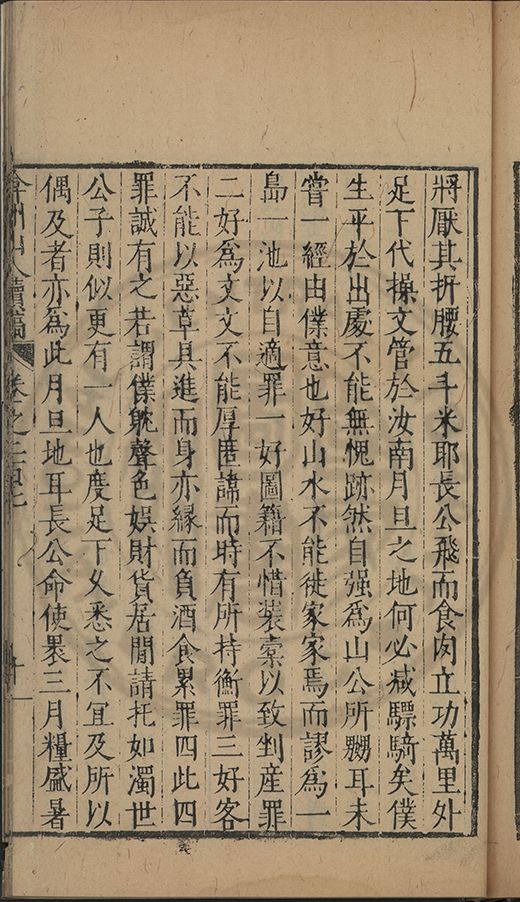 將厭其折腰五斗米耶長公飛而食肉立功萬里外
足下代操文管於汝南月旦之地何必減驃騎矣僕
生平於出處不能無愧跡然自强爲山公所嬲耳未
嘗一經由僕意也好山水不能徙家家焉而謬爲一
島一池以自適罪一好圖籍不惜裝槖以致剉産罪
二好爲文文不能厚匿諱而時有所持衡罪三好客
不能以惡草具進而身亦緣而負酒食累罪四此四
罪誠有之若謂僕躭聲色娛財貨居閒請托如濁世
公子則似更有一人也度足下乆悉之不宜及所以
偶及者亦爲此月旦地耳長公命使褁三月糧盛暑
弇州山人續稿 卷之二百七 十一